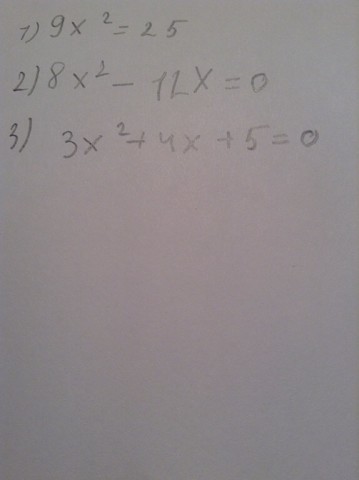 1) 9x² = 25
2) 8x² - 12x = 0
3) 3x² + 4x + 5 = 0